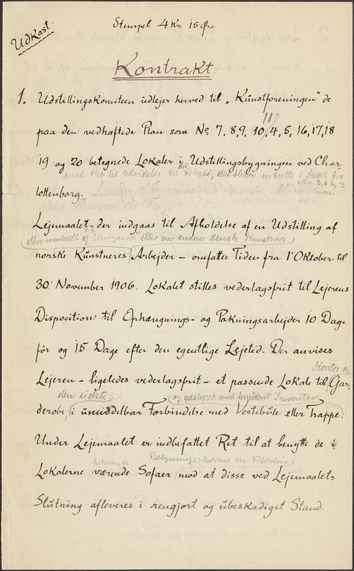 Udkast
Stempel 4 Kr 15 Øre
Kontrakt
1. Udstillingskomiteen udlejer herved til „Kunstforeningen" de
11
paa den vedhæftede Plan som No 7, 8, 9, 10, 4, 5, 16, 17, 18
19 og 20 betegnede Lokaler i Udstillingsbygningen ved Char
lottenborg.
Lejemaalet, der indgaas til Afholdelse af en Udstilling af
norske Kunstneres Arbejder – omfatter Tiden fra 1' Oktober til
30 November 1906. Lokalet stilles vederlagsfrit til Lejerens
Disposition til Ophængnings- og Pakningsarbejder 10 Dage
før og 15 Dage efter den egentlige Lejetid. Der anvises
Lejeren – ligeledes vederlagsfrit – et passende Lokale til Gar
derobe i umiddelbar Forbindelse med Vestibule eller Trappe.
Under Lejemaalet er indbefattet Ret til at benytte de i
Lokalerne værende Sofaer mod at disse ved Lejemaalets
Slutning afleveres i rengjort og ubeskadiget Stand.